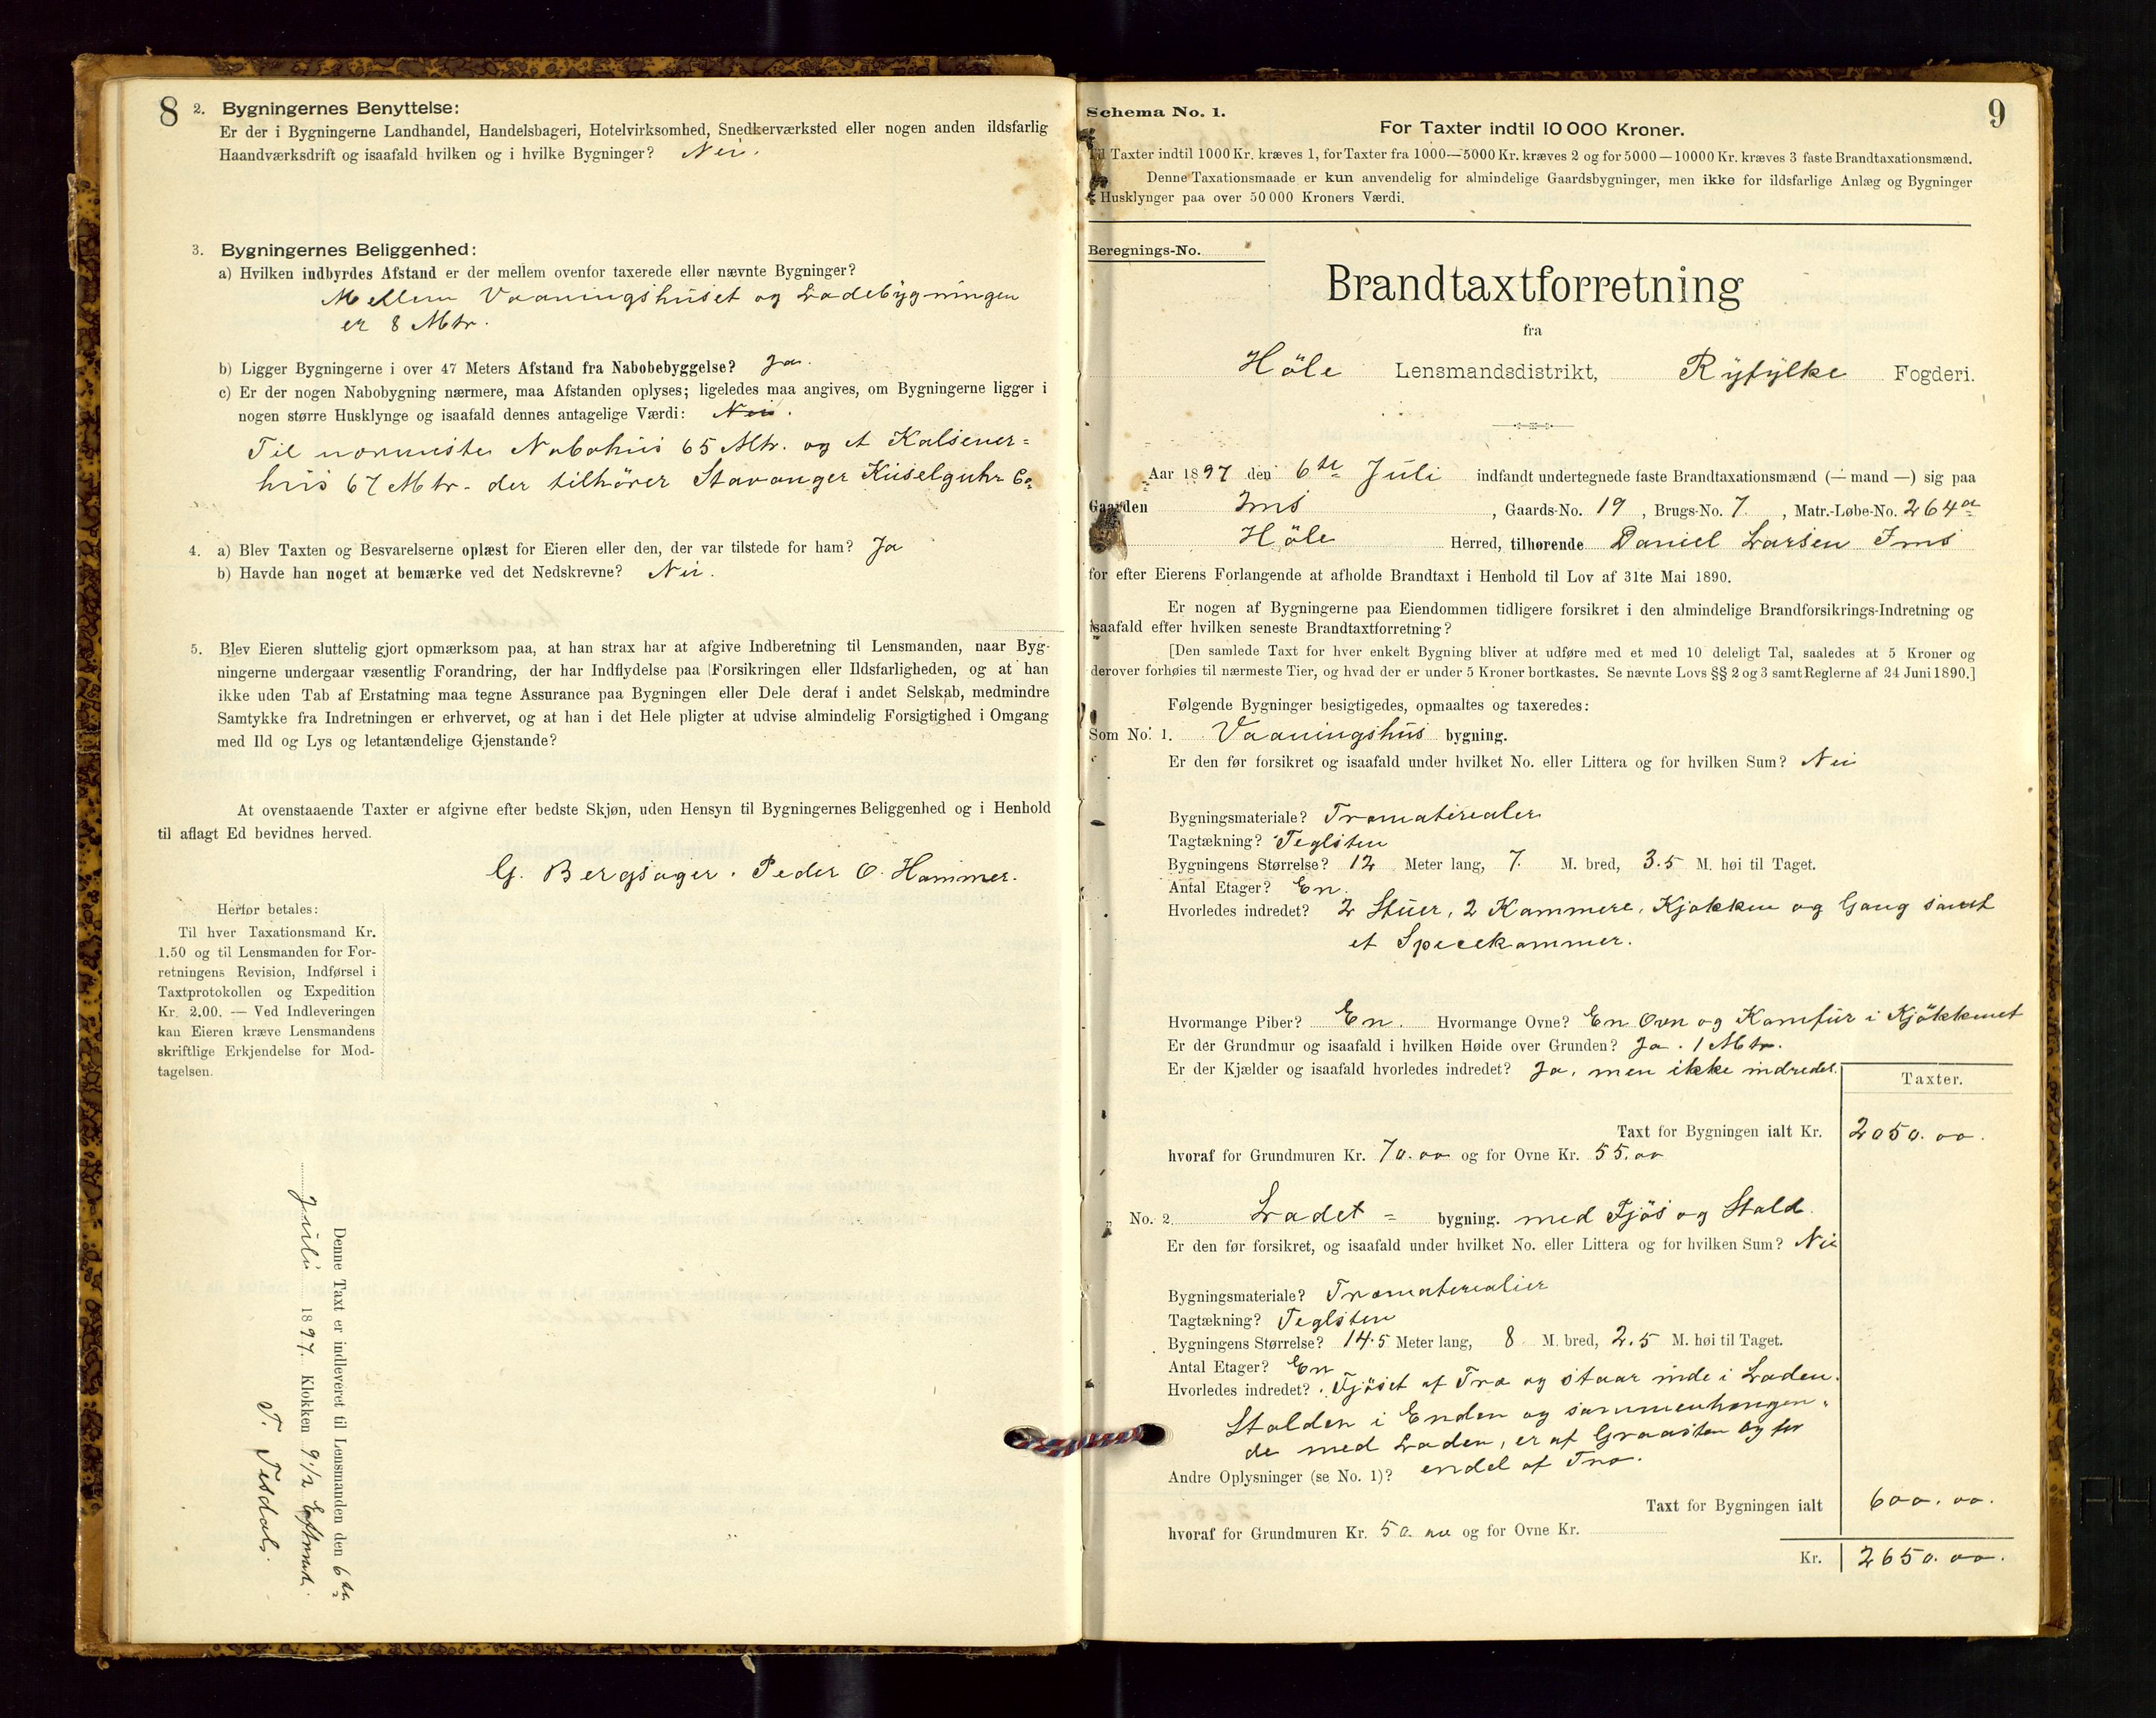 8
2. Bygningernes Benyttelse:
Er der i Bygningerne Landhandel, Handelsbageri, Hotelvirksomhed, Snedkerværksted eller nogen anden ildsfarlig
Haandværksdrift og isaafald hvilken og i hvilke Bygninger? Nei.
3. Bygningernes Beliggenhed:
a) Hvilken indbyrdes Afstand er der mellem ovenfor taxerede eller nævnte Bygninger?
Mellem Vaaningshuset og Ladebygningen
er 8 Mtr.
b) Ligger Bygningerne i over 47 Meters Afstand fra Nabobebyggelse? Ja.
c) Er der nogen Nabobygning nærmere, maa Afstanden oplyses; ligeledes maa angives, om Bygningerne ligger i
nogen større Husklynge og isaafald dennes antagelige Værdi: Nei.
Til nærmeste Nabohus 65 Mtr. og et Kalsiner=
hus 67 Mtr. der tilhører Stavanger Kiselguhr Co
4. a) Blev Taxten og Besvarelserne oplæst for Eieren eller den, der var tilstede for ham? Ja
b) Havde han noget at bemærke ved det Nedskrevne? Nei.
5. Blev Eieren sluttelig gjort opmærksom paa, at han strax har at afgive Indberetning til Lensmanden, naar Byg-
ningerne undergaar væsentlig Forandring, der har Indflydelse paa Forsikringen eller Ildsfarligheden, og at han
ikke uden Tab af Erstatning maa tegne Assurance paa Bygningen eller Dele deraf i andet Selskab, medmindre
Samtykke fra Indretningen er erhvervet, og at han i det Hele pligter at udvise almindelig Forsigtighed i Omgang
med Ild og Lys og letantændelige Gjenstande?
At ovenstaaende Taxter er afgivne efter bedste Skjøn, uden Hensyn til Bygningernes Beliggenhed og i Henhold
til aflagt Ed bevidnes herved.
G. Bergsager. Peder O. Hammer.
Herfor betales:
Til hver Taxationsmand Kr.
1.50 og til Lensmanden for For-
retningens Revision, Indførsel i
Taxtprotokollen og Expedition
Kr. 2.00. — Ved Indleveringen
kan Eieren kræve Lensmandens
skriftlige Erkjendelse for Mod-
tagelsen.
Denne Taxt er indleveret til Lensmanden den 6te
Juli 1897. Klokken 9 1/2 Efterm.
T. Tesdal.
9
Schema No. 1.
For Taxter indtil 10 000 Kroner.
Til Taxter indtil 1000 Kr. kræves 1, for Taxter fra 1000—5000 Kr. kræves 2 og for 5000—10000 Kr. kræves 3 faste Brandtaxationsmænd.
Denne Taxationsmaade er kun anvendelig for almindelige Gaardsbygninger, men ikke for ildsfarlige Anlæg og Bygninger
Husklynger paa over 50 000 Kroners Værdi.
Beregnings-No.
Brandtaxtforretning
fra
Höle Lensmandsdistrikt, Ryfylke Fogderi.
Aar 1897 den 6te Juli indfandt undertegnede faste Brandtaxationsmænd (— mand —) sig paa
Gaarden Ims, Gaards-No. 19, Brugs-No. 7, Matr.-Løbe-No. 264a
Höle Herred, tilhørende Daniel Larsen Ims
for efter Eierens Forlangende at afholde Brandtaxt i Henhold til Lov af 31te Mai 1890.
Er nogen af Bygningerne paa Eiendommen tidligere forsikret i den almindelige Brandforsikrings-Indretning og
isaafald efter hvilken seneste Brandtaxtforretning?
[Den samlede Taxt for hver enkelt Bygning bliver at udføre med et med 10 deleligt Tal, saaledes at 5 Kroner og
derover forhøies til nærmeste Tier, og hvad der er under 5 Kroner bortkastes. Se nævnte Lovs §§ 2 og 3 samt Reglerne af 24 Juni 1890.]
Følgende Bygninger besigtigedes, opmaaltes og taxeredes:
Som No. 1. Vaaningshus bygning.
Er den før forsikret og isaafald under hvilket No. eller Littera og for hvilken Sum? Nei
Bygningsmateriale? Træmaterialer
Tagtækning? Teglsten
Bygningens Størrelse? 12 Meter lang, 7. M. bred, 3.5 M. høi til Taget.
Antal Etager? En.
Hvorledes indredet? 2 Stuer, 2 Kammere, Kjøkken og Gang samt
et Spisekammer.
Hvormange Piber? En. Hvormange Ovne? En Ovn og Komfur i Kjökkenet
Er der Grundmur og isaafald i hvilken Høide over Grunden? Ja. 1 Mtr.
Er der Kjælder og isaafald hvorledes indredet? Ja, men ikke indredet.
Taxter.
Taxt for Bygningen ialt Kr. 2050.00.
hvoraf for Grundmuren Kr. 70.00 og for Ovne Kr. 55.00
No. 2. Ladet = bygning. med Fjös og Stald.
Er den før forsikret, og isaafald under hvilket No. eller Littera og for hvilken Sum? Nei
Bygningsmateriale? Træmaterialier
Tagtækning? Teglsten
Bygningens Størrelse? 14.5 Meter lang, 8 M. bred, 2.5 M. høi til Taget.
Antal Etager? En
Hvorledes indredet? Fjöset af Træ og staar inde i Laden.
Stalden i Enden og sammenhængen-
de med Laden, er af Graasten og for
Andre Oplysninger (se No. 1)? endel af Træ.
Taxt for Bygningen ialt 600.00.
hvoraf for Grundmuren Kr. 50.00 og for Ovne Kr.
Kr. 2650.00.